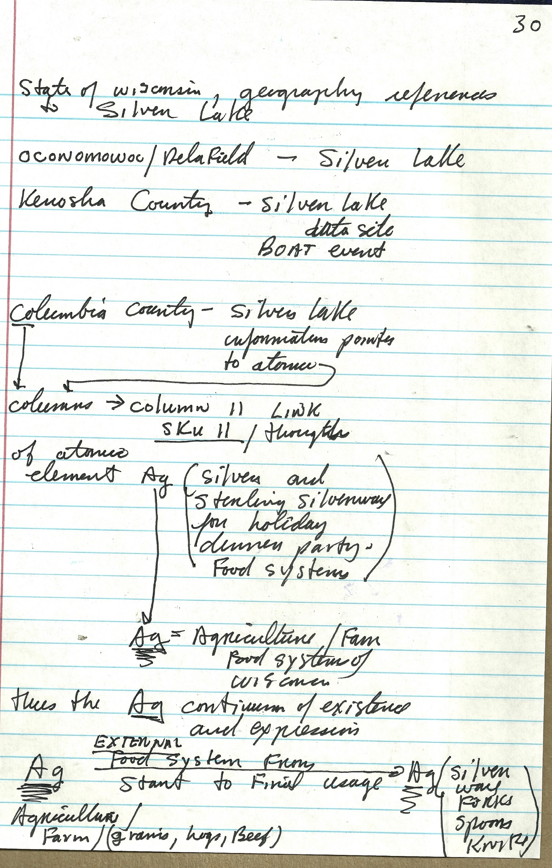 30
State of wisconsin, geography references
to Silver Lake
Oconomowoc/Delafield – Silver Lake
Kenosha County – Silver Lake
data site
BOAT event
Columbia County – Silver Lake
information pointer
to atomic
columns → column 11 LINK
SKU 11 / thoughts
of atomic
element Ag (Silver and
Sterling silverware
for holiday
dinner party.
Food systems)
Ag = Agriculture / Farm
Food systems of
wisconsin
thus the Ag continuum of existence
and expression
EXTERNAL
Ag Food System From → Ag (Silver
Start to Final usage ware
Forks
Spoons
Knives)
Agriculture/
Farm/(grains, hogs, Beef)